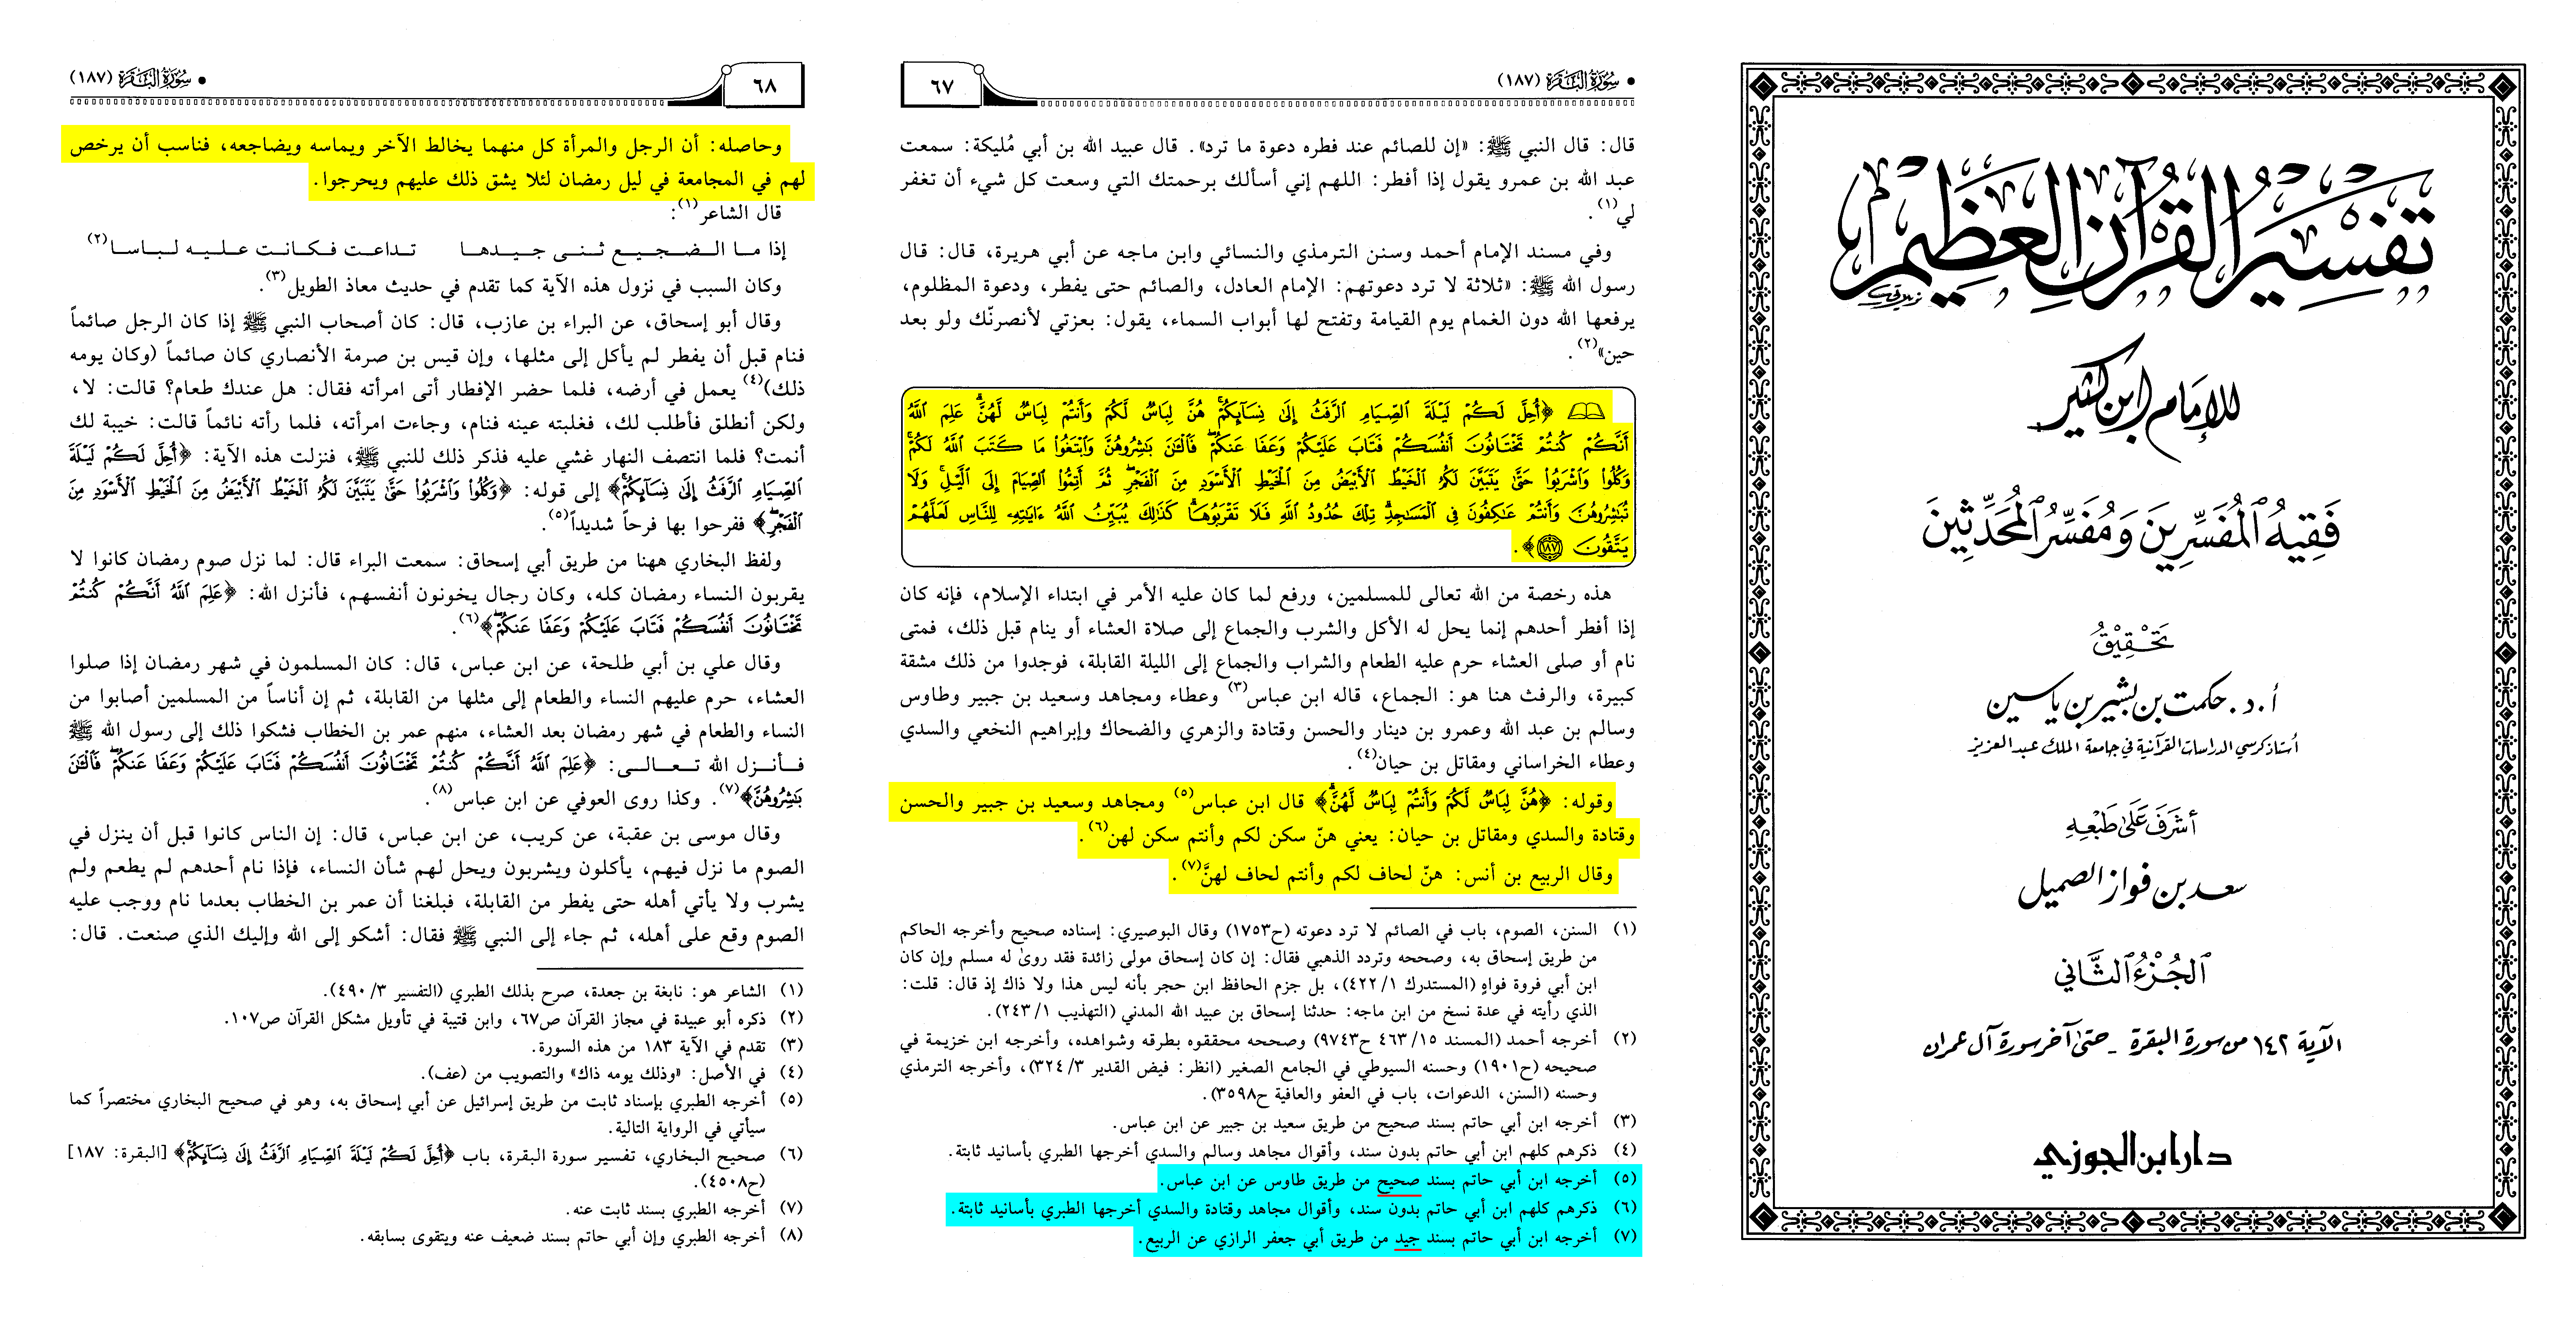 تفسير القرآن العظيم
للإمام ابن كثير
فَقِيهُ ٱلْمُفَسِّرِينَ وَمُفَسِّرُ ٱلْمُحَدِّثِينَ
تَحْقِيْقُ
أ.د. حكمت بن بشير بن ياسين
أستاذ كرسي الدراسات القرآنية في جامعة الملك عبد العزيز
أشرَفَ عَلَى طَبْعِهِ
سعد بن فواز الصميل
ٱلْجُزْءُ ٱلثَّانِي
الآية ١٤٢ من سورة البقرة - حتى آخر سورة آل عمران
دار ابن الجوزي
• سُورَةُ البَقَرَة (١٨٧)
٦٧
قال: قال النبي ﷺ: «إن للصائم عند فطره دعوة ما ترد». قال عبيد الله بن أبي مُليكة: سمعت
عبد الله بن عمرو يقول إذا أفطر: اللهم إني أسألك برحمتك التي وسعت كل شيء أن تغفر
لي(١).
وفي مسند الإمام أحمد وسنن الترمذي والنسائي وابن ماجه عن أبي هريرة، قال: قال
رسول الله ﷺ: «ثلاثة لا ترد دعوتهم: الإمام العادل، والصائم حتى يفطر، ودعوة المظلوم،
يرفعها الله دون الغمام يوم القيامة وتفتح لها أبواب السماء، يقول: بعزتي لأنصرنّك ولو بعد
حين»(٢).
﴿أُحِلَّ لَكُمْ لَيْلَةَ ٱلصِّيَامِ ٱلرَّفَثُ إِلَىٰ نِسَآئِكُمْ هُنَّ لِبَاسٌ لَّكُمْ وَأَنتُمْ لِبَاسٌ لَّهُنَّ عَلِمَ ٱللَّهُ
أَنَّكُمْ كُنتُمْ تَخْتَانُونَ أَنفُسَكُمْ فَتَابَ عَلَيْكُمْ وَعَفَا عَنكُمْ فَٱلْـَٰٔنَ بَٰشِرُوهُنَّ وَٱبْتَغُوا۟ مَا كَتَبَ ٱللَّهُ لَكُمْ
وَكُلُوا۟ وَٱشْرَبُوا۟ حَتَّىٰ يَتَبَيَّنَ لَكُمُ ٱلْخَيْطُ ٱلْأَبْيَضُ مِنَ ٱلْخَيْطِ ٱلْأَسْوَدِ مِنَ ٱلْفَجْرِ ثُمَّ أَتِمُّوا۟ ٱلصِّيَامَ إِلَى ٱلَّيْلِ وَلَا
تُبَٰشِرُوهُنَّ وَأَنتُمْ عَٰكِفُونَ فِى ٱلْمَسَٰجِدِ تِلْكَ حُدُودُ ٱللَّهِ فَلَا تَقْرَبُوهَا كَذَٰلِكَ يُبَيِّنُ ٱللَّهُ ءَايَٰتِهِۦ لِلنَّاسِ لَعَلَّهُمْ
يَتَّقُونَ ١٨٧﴾.
هذه رخصة من الله تعالى للمسلمين، ورفع لما كان عليه الأمر في ابتداء الإسلام، فإنه كان
إذا أفطر أحدهم إنما يحل له الأكل والشرب والجماع إلى صلاة العشاء أو ينام قبل ذلك، فمتى
نام أو صلى العشاء حرم عليه الطعام والشراب والجماع إلى الليلة القابلة، فوجدوا من ذلك مشقة
كبيرة، والرفث هنا هو: الجماع، قاله ابن عباس(٣) وعطاء ومجاهد وسعيد بن جبير وطاوس
وسالم بن عبد الله وعمرو بن دينار والحسن وقتادة والزهري والضحاك وإبراهيم النخعي والسدي
وعطاء الخراساني ومقاتل بن حيان(٤).
وقوله: ﴿هُنَّ لِبَاسٌ لَّكُمْ وَأَنتُمْ لِبَاسٌ لَّهُنَّ﴾ قال ابن عباس(٥) ومجاهد وسعيد بن جبير والحسن
وقتادة والسدي ومقاتل بن حيان: يعني هنّ سكن لكم وأنتم سكن لهن(٦).
وقال الربيع بن أنس: هنّ لحاف لكم وأنتم لحاف لهنَّ(٧).
(١) السنن، الصوم، باب في الصائم لا ترد دعوته (ح١٧٥٣) وقال البوصيري: إسناده صحيح وأخرجه الحاكم
من طريق إسحاق به، وصححه وتردد الذهبي فقال: إن كان إسحاق مولى زائدة فقد روىٰ له مسلم وإن كان
ابن أبي فروة فواهٍ (المستدرك ١/ ٤٢٢)، بل جزم الحافظ ابن حجر بأنه ليس هذا ولا ذاك إذ قال: قلت:
الذي رأيته في عدة نسخ من ابن ماجه: حدثنا إسحاق بن عبيد الله المدني (التهذيب ١/ ٢٤٣).
(٢) أخرجه أحمد (المسند ١٥/ ٤٦٣ ح٩٧٤٣) وصححه محققوه بطرقه وشواهده، وأخرجه ابن خزيمة في
صحيحه (ح١٩٠١) وحسنه السيوطي في الجامع الصغير (انظر: فيض القدير ٣/ ٣٢٤)، وأخرجه الترمذي
وحسنه (السنن، الدعوات، باب في العفو والعافية ح٣٥٩٨).
(٣) أخرجه ابن أبي حاتم بسند صحيح من طريق سعيد بن جبير عن ابن عباس.
(٤) ذكرهم كلهم ابن أبي حاتم بدون سند، وأقوال مجاهد وسالم والسدي أخرجها الطبري بأسانيد ثابتة.
(٥) أخرجه ابن أبي حاتم بسند صحيح من طريق طاوس عن ابن عباس.
(٦) ذكرهم كلهم ابن أبي حاتم بدون سند، وأقوال مجاهد وقتادة والسدي أخرجها الطبري بأسانيد ثابتة.
(٧) أخرجه ابن أبي حاتم بسند جيد من طريق أبي جعفر الرازي عن الربيع.
• سُورَةُ البَقَرَة (١٨٧)
٦٨
وحاصله: أن الرجل والمرأة كل منهما يخالط الآخر ويماسه ويضاجعه، فناسب أن يرخص
لهم في المجامعة في ليل رمضان لئلا يشق ذلك عليهم ويحرجوا.
قال الشاعر(١):
إذا ما الضجيع ثنى جيدها تداعت فكانت عليه لباسا(٢)
وكان السبب في نزول هذه الآية كما تقدم في حديث معاذ الطويل(٣).
وقال أبو إسحاق، عن البراء بن عازب، قال: كان أصحاب النبي ﷺ إذا كان الرجل صائماً
فنام قبل أن يفطر لم يأكل إلى مثلها، وإن قيس بن صرمة الأنصاري كان صائماً (وكان يومه
ذلك)(٤) يعمل في أرضه، فلما حضر الإفطار أتى امرأته فقال: هل عندك طعام؟ قالت: لا،
ولكن أنطلق فأطلب لك، فغلبته عينه فنام، وجاءت امرأته، فلما رأته نائماً قالت: خيبة لك
أنمت؟ فلما انتصف النهار غشي عليه فذكر ذلك للنبي ﷺ، فنزلت هذه الآية: ﴿أُحِلَّ لَكُمْ لَيْلَةَ
ٱلصِّيَامِ ٱلرَّفَثُ إِلَىٰ نِسَآئِكُمْ﴾ إلى قوله: ﴿وَكُلُوا۟ وَٱشْرَبُوا۟ حَتَّىٰ يَتَبَيَّنَ لَكُمُ ٱلْخَيْطُ ٱلْأَبْيَضُ مِنَ ٱلْخَيْطِ ٱلْأَسْوَدِ مِنَ
ٱلْفَجْرِ﴾ ففرحوا بها فرحاً شديداً(٥).
ولفظ البخاري ههنا من طريق أبي إسحاق: سمعت البراء قال: لما نزل صوم رمضان كانوا لا
يقربون النساء رمضان كله، وكان رجال يخونون أنفسهم، فأنزل الله: ﴿عَلِمَ ٱللَّهُ أَنَّكُمْ كُنتُمْ
تَخْتَانُونَ أَنفُسَكُمْ فَتَابَ عَلَيْكُمْ وَعَفَا عَنكُمْ﴾(٦).
وقال علي بن أبي طلحة، عن ابن عباس، قال: كان المسلمون في شهر رمضان إذا صلوا
العشاء، حرم عليهم النساء والطعام إلى مثلها من القابلة، ثم إن أناساً من المسلمين أصابوا من
النساء والطعام في شهر رمضان بعد العشاء، منهم عمر بن الخطاب فشكوا ذلك إلى رسول الله ﷺ
فأنزل الله تعالى: ﴿عَلِمَ ٱللَّهُ أَنَّكُمْ كُنتُمْ تَخْتَانُونَ أَنفُسَكُمْ فَتَابَ عَلَيْكُمْ وَعَفَا عَنكُمْ فَٱلْـَٰٔنَ
بَٰشِرُوهُنَّ﴾(٧). وكذا روى العوفي عن ابن عباس(٨).
وقال موسى بن عقبة، عن كريب، عن ابن عباس، قال: إن الناس كانوا قبل أن ينزل في
الصوم ما نزل فيهم، يأكلون ويشربون ويحل لهم شأن النساء، فإذا نام أحدهم لم يطعم ولم
يشرب ولا يأتي أهله حتى يفطر من القابلة، فبلغنا أن عمر بن الخطاب بعدما نام ووجب عليه
الصوم وقع على أهله، ثم جاء إلى النبي ﷺ فقال: أشكو إلى الله وإليك الذي صنعت. قال:
(١) الشاعر هو: نابغة بن جعدة، صرح بذلك الطبري (التفسير ٣/ ٤٩٠).
(٢) ذكره أبو عبيدة في مجاز القرآن ص٦٧، وابن قتيبة في تأويل مشكل القرآن ص١٠٧.
(٣) تقدم في الآية ١٨٣ من هذه السورة.
(٤) في الأصل: «وذلك يومه ذاك» والتصويب من (عف).
(٥) أخرجه الطبري بإسناد ثابت من طريق إسرائيل عن أبي إسحاق به، وهو في صحيح البخاري مختصراً كما
سيأتي في الرواية التالية.
(٦) صحيح البخاري، تفسير سورة البقرة، باب ﴿أُحِلَّ لَكُمْ لَيْلَةَ ٱلصِّيَامِ ٱلرَّفَثُ إِلَىٰ نِسَآئِكُمْ﴾ [البقرة: ١٨٧]
(ح٤٥٠٨).
(٧) أخرجه الطبري بسند ثابت عنه.
(٨) أخرجه الطبري وإبن أبي حاتم بسند ضعيف عنه ويتقوى بسابقه.